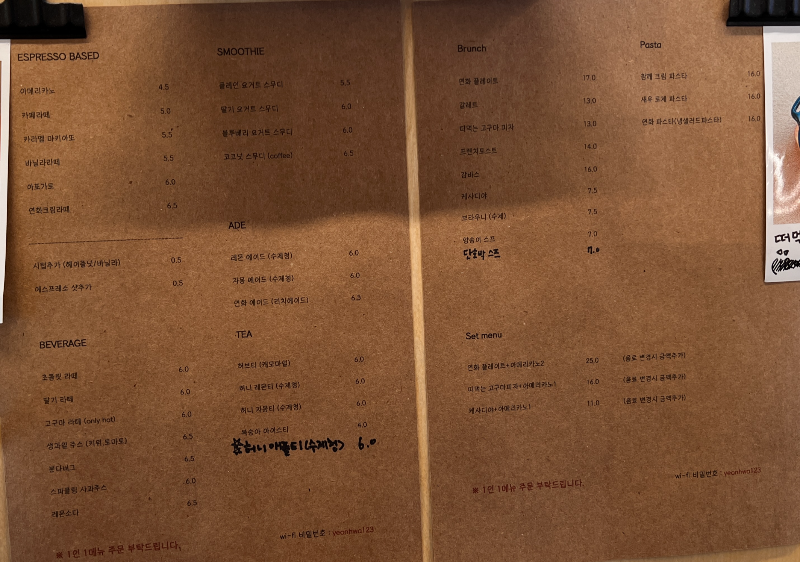 ESPRESSO BASED
아메리카노 4.5
카페라떼 5.0
카라멜 마키아또 5.5
바닐라라떼 5.5
아포가토 6.0
연화크림라떼 6.5
시럽추가 (헤이즐넛/바닐라) 0.5
에스프레소 샷추가 0.5
BEVERAGE
초콜릿 라떼 6.0
딸기 라떼 6.0
고구마 라떼 (only hot) 6.0
생과일 주스 (키위,토마토) 6.5
분다버그 6.5
스파클링 사과주스 6.0
레몬소다 6.5
※ 1인 1메뉴 주문 부탁드립니다.
SMOOTHIE
플레인 요거트 스무디 5.5
딸기 요거트 스무디 6.0
블루베리 요거트 스무디 6.0
코코넛 스무디 (coffee) 6.5
ADE
레몬 에이드 (수제청) 6.0
자몽 에이드 (수제청) 6.0
연화 에이드 (리치에이드) 6.3
TEA
허브티 (캐모마일) 6.0
허니 레몬티 (수제청) 6.0
허니 자몽티 (수제청) 6.0
복숭아 아이스티 6.0
허니애플티(수제청) 6.0
wi-fi 비밀번호 : yeonhwa123
Brunch
연화 플레이트 17.0
갈레트 13.0
떠먹는 고구마 피자 13.0
프렌치토스트 14.0
감바스 16.0
퀘사디아 7.5
브라우니 (수제) 7.5
양송이 스프 7.0
단호박 스프 7.0
Set menu
연화 플레이트+아메리카노2 25.0 (음료 변경시 금액추가)
떠먹는 고구마피자+아메리카노) 16.0 (음료 변경시 금액추가)
퀘사디아+아메리카노) 11.0 (음료 변경시 금액추가)
※ 1인 1메뉴 주문 부탁드립니다.
Pasta
참깨 크림 파스타 16.0
새우 로제 파스타 16.0
연화 파스타(냉샐러드파스타) 16.0
wi-fi 비밀번호 : yeonhwa123
떠먹